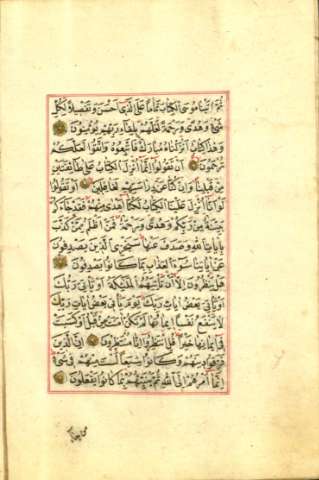 ثُمَّ اٰتَيْنَا مُوسَى الْكِتَابَ تَمَامًا عَلَى الَّذِي اَحْسَنَ وَتَفْصِيلًا لِكُلِّ
شَيْءٍ وَهُدًى وَرَحْمَةً لَعَلَّهُمْ بِلِقَاءِ رَبِّهِمْ يُؤْمِنُونَ
وَهٰذَا كِتَابٌ اَنْزَلْنَاهُ مُبَارَكٌ فَاتَّبِعُوهُ وَاتَّقُوا لَعَلَّكُمْ
تُرْحَمُونَ اَنْ تَقُولُوا اِنَّمَا اُنْزِلَ الْكِتَابُ عَلَى طَائِفَتَيْنِ
مِنْ قَبْلِنَا وَاِنْ كُنَّا عَنْ دِرَاسَتِهِمْ لَغَافِلِينَ اَوْ تَقُولُوا
لَوْ اَنَّا اُنْزِلَ عَلَيْنَا الْكِتَابُ لَكُنَّا اَهْدَى مِنْهُمْ فَقَدْ جَاءَكُمْ
بَيِّنَةٌ مِنْ رَبِّكُمْ وَهُدًى وَرَحْمَةٌ فَمَنْ اَظْلَمُ مِمَّنْ كَذَّبَ
بِاٰيَاتِ اللّٰهِ وَصَدَفَ عَنْهَا سَنَجْزِي الَّذِينَ يَصْدِفُونَ
عَنْ اٰيَاتِنَا سُوءَ الْعَذَابِ بِمَا كَانُوا يَصْدِفُونَ
هَلْ يَنْظُرُونَ اِلَّا اَنْ تَاْتِيَهُمُ الْمَلٰئِكَةُ اَوْ يَاْتِيَ رَبُّكَ
اَوْ يَاْتِيَ بَعْضُ اٰيَاتِ رَبِّكَ يَوْمَ يَاْتِي بَعْضُ اٰيَاتِ رَبِّكَ
لَا يَنْفَعُ نَفْسًا اِيمَانُهَا لَمْ تَكُنْ اٰمَنَتْ مِنْ قَبْلُ اَوْ كَسَبَتْ
فِي اِيمَانِهَا خَيْرًا قُلِ انْتَظِرُوا اِنَّا مُنْتَظِرُونَ اِنَّ الَّذِينَ
فَرَّقُوا دِينَهُمْ وَكَانُوا شِيَعًا لَسْتَ مِنْهُمْ فِي شَيْءٍ
اِنَّمَا اَمْرُهُمْ اِلَى اللّٰهِ ثُمَّ يُنَبِّئُهُمْ بِمَا كَانُوا يَفْعَلُونَ
من جاء